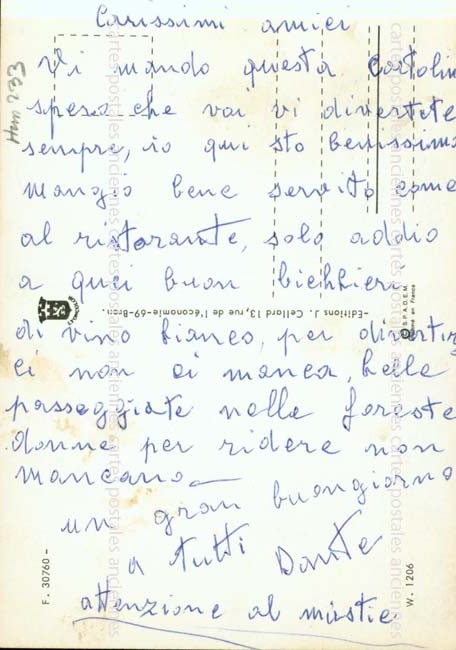 Carissimi amici
Vi mando questa Cartolin
spero che voi vi divertite
sempre, io qui sto benissimo
mangio bene servito come
al ristorante, solo addio
a quei buon bichhieri
di vin bianco, per divertir
ci non ci manca, belle
passeggiate nelle foreste
donne per ridere non
mancano
un gran buongiorno
a tutti Dante
attenzione al
HM 293
-Editions J. Cellard 13, rue de l'économie-69-Bron.
© S.P.A.D.E.M.
en France
F. 30760 -
W. 1206
cartes postales anciennes
cartes postales anciennes